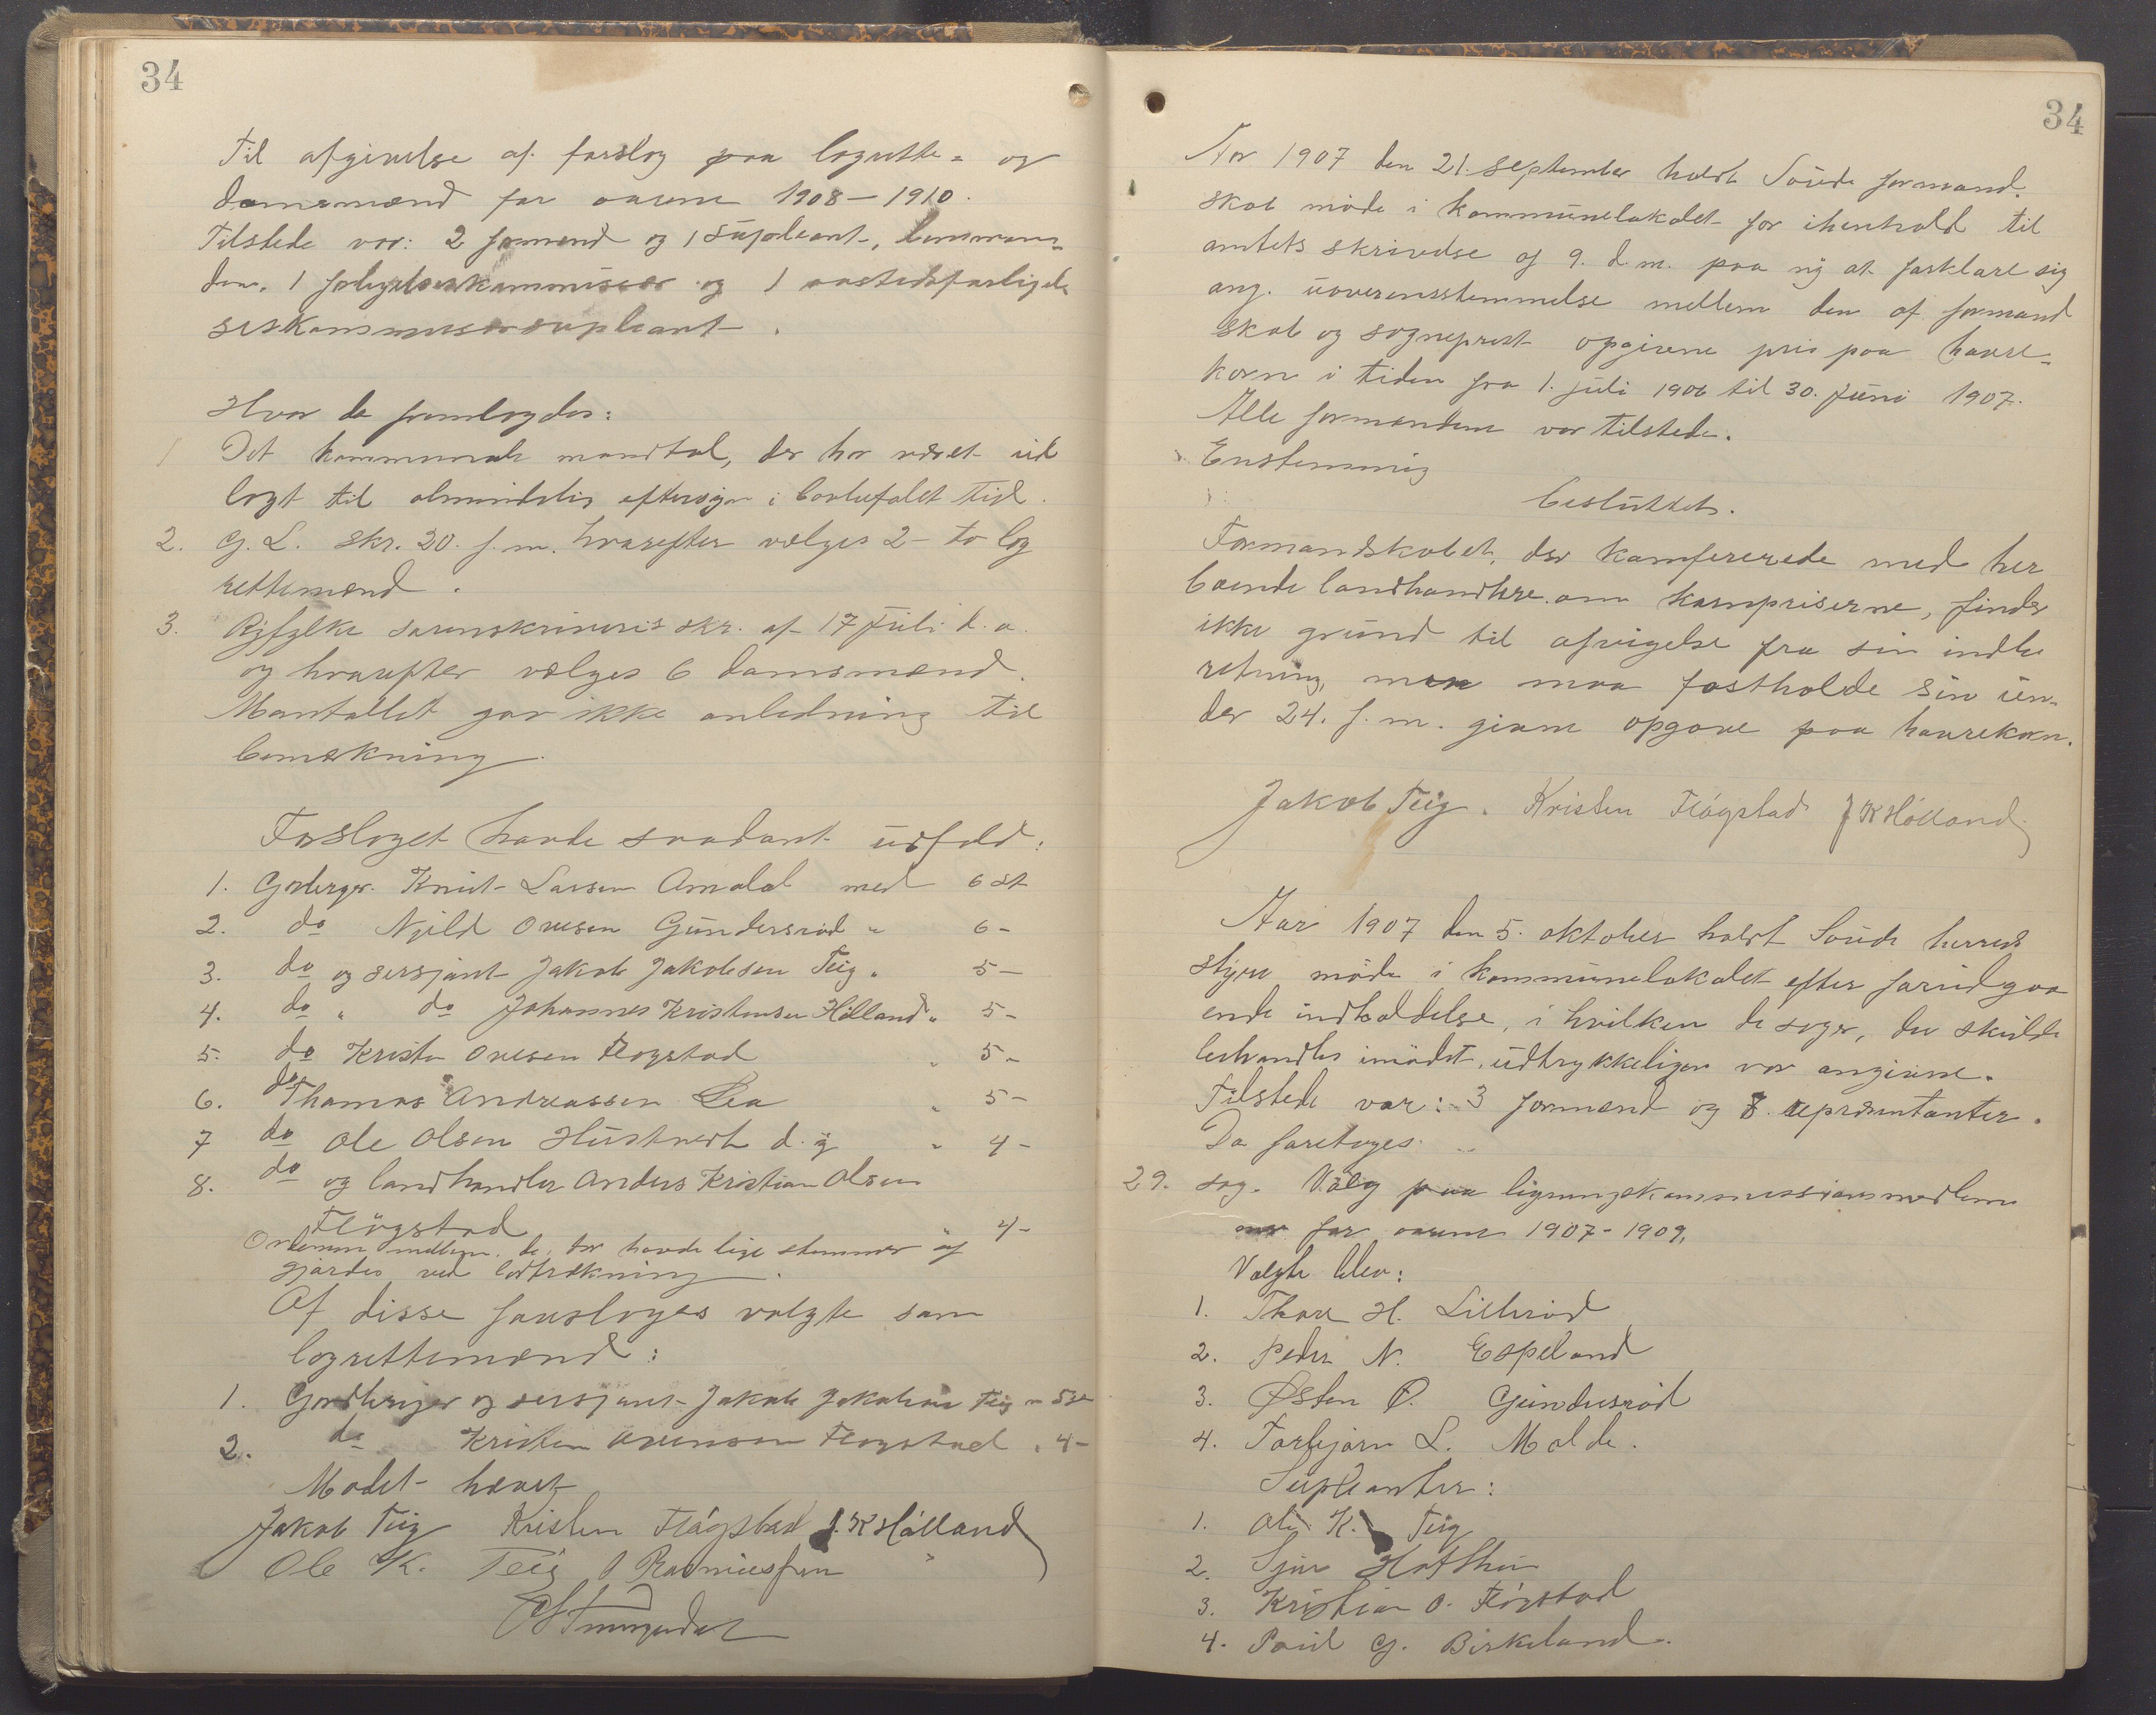 34
Til afgivelse af forslag paa lagrette- og
domsmænd for aarene 1908-1910.
Tilstede var: 2 formænd og 1 supleant, lensman-
den, 1 forligelseskommissær og 1 aastedsforligel-
seskommissærsupleant.
Hvor da fremlagdes:
1 Det kommunale mandtal, der har været ud
lagt til almindelig eftersyn i lovbefalet tid.
2. G. L. skr. 20. f.m. hvorefter vælges 2- to lag
rettemænd.
3. Ryfylke sorenskriveris skr. af 17 Juli d.a.
og hvorefter vælges 6 domsmænd.
Mantallet gav ikke anledning til
bemærkning.
Forslaget havde saadant udfald:
1. Grdbrger. Knut Larsen Amdal med 6 st
2. do Njeld Ovesen Gundersrød " 6-
3. do og sersjant Jakob Jakobsen Teig " 5-
4. do " do Johannes Kristensen Hålland " 5-
5. do Kristen Ovesen Fløgstad " 5-
6. do Thomas Andreassen Lea " 5-
7 do Ole Olsen Hustvedt d.y " 4-
8. do og landhandler Anders Kristian Olsen
Fløgstad " 4-
Ordenen mellem de, der havde lige stemmer af
gjordes ved lodtrækning.
Af disse foresloges valgte som
lagrettemænd:
1. Gardbruger og sersjant Jakob Jakobsen Teig m 5 st
2. do Kristen Ovensen Fløgstad " 4-
Mødet hævet
Jakob Teig Kristen Flógstad J. K Hålland
Ole K. Teig O Rasmussen
34
Aar 1907 den 21. september holdt Soude formand-
skab møde i kommunelokalet for ihenhold til
amtets skrivelse af 9. d.m. paa ny at forklare sig
ang. uoverensstemmelse mellem den af formand
skab og sogneprest opgivne pris paa havre-
korn i tiden fra 1. juli 1906 til 30. Juni 1907.
Alle formændene var tilstede.
Enstemmig
besluttet.
Formandskabet, der konfererede med her
boende landhandlere om kornpriserne, finder
ikke grund til afvigelse fra sin indbe
retning, men maa fastholde sin un-
der 24. f.m. givne opgave paa havrekorn.
Jakob Teig. Kristen Flógstad J K Hålland
Aar 1907 den 5. oktober holdt Soude herreds
styre møde i kommunelokalet efter forudgaa
ende indkaldelse, i hvilken de sager, der skulde
behandles i mødet, udtrykkeligen var angivne.
Tilstede var: 3 formænd og 8 repræsentanter.
Da foretoges:
29. sag. Valg paa ligningskommissionsmedlem
mer for aarene 1907-1909.
Valgte blev:
1. Thore H. Lillerød
2. Peder N. Espeland
3. Østen O. Gundersrød
4. Torbjørn L. Molde.
Supleanter:
1. Ole K. Teig
2. Sjur Hatthei
3. Kristian O. Flógstad
4. Poul G. Birkeland.